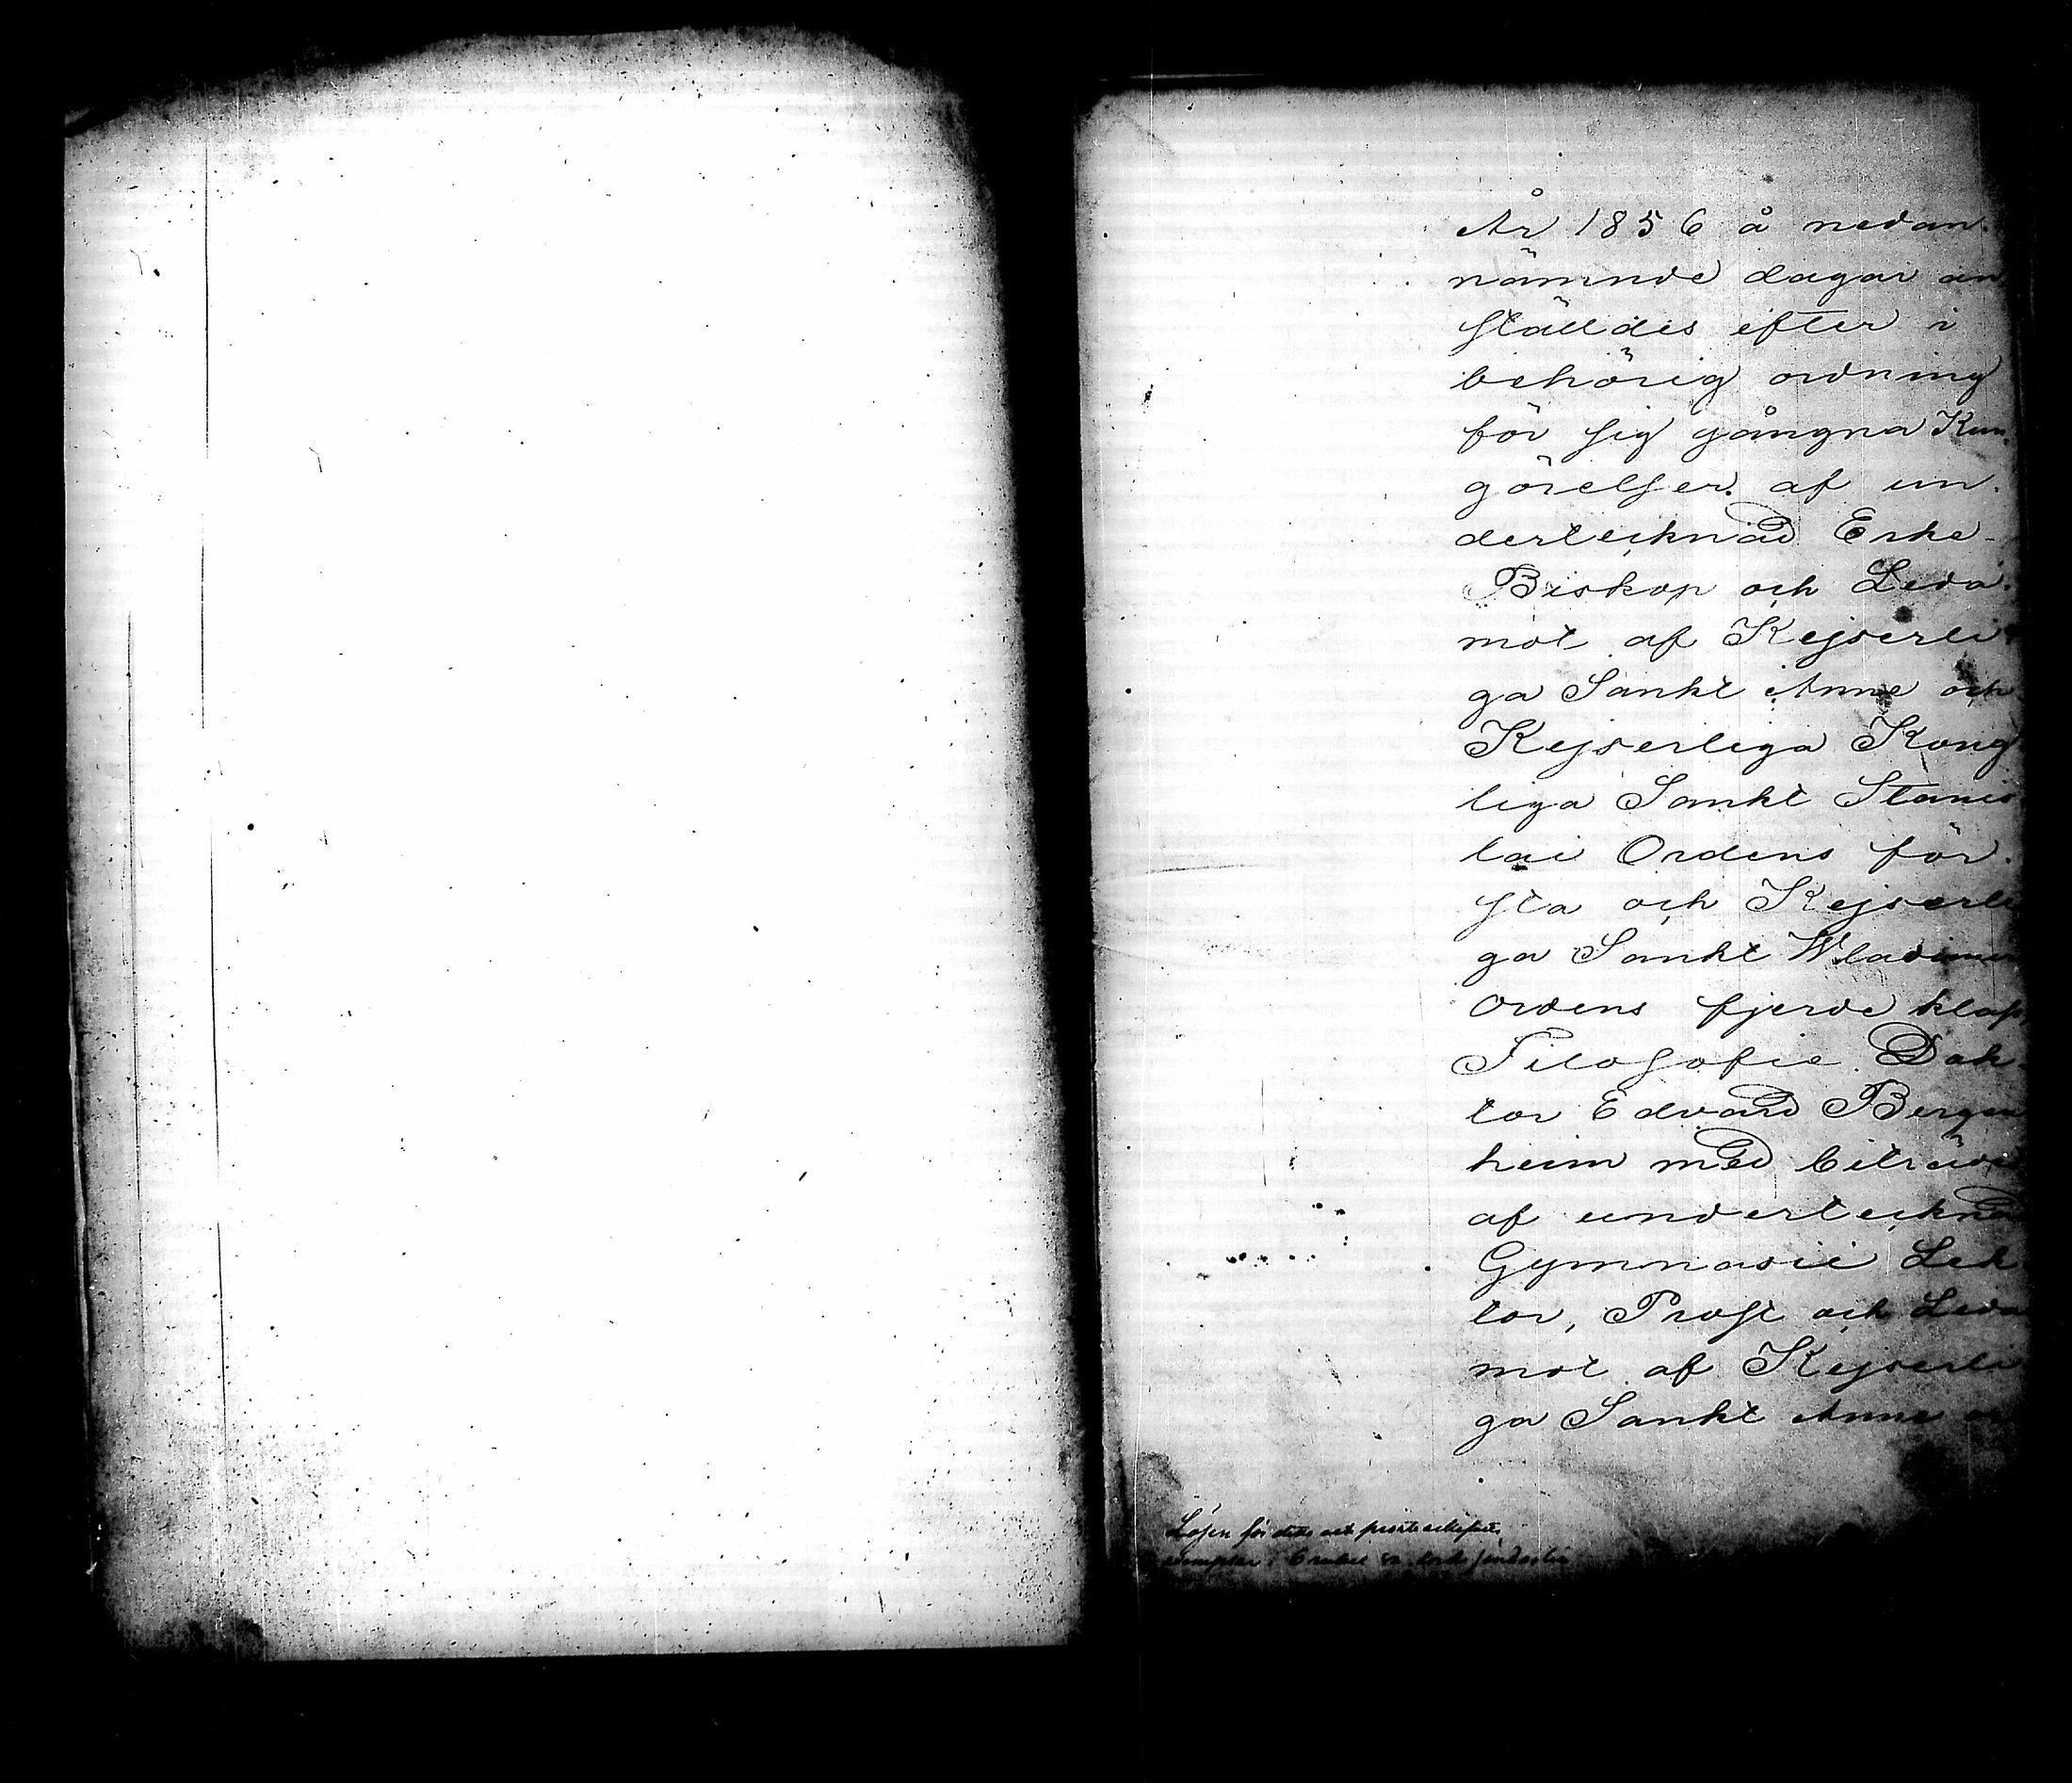 År 1856 å nedan-
nämnde dagar an
ställdes efter i
behörig ordning
för sig gångna Kun-
görelser af un-
dertecknad Erke-
Biskop och Leda-
mot af Kejserli
ga Sankt Anne och
Kejserliga Kong
liga Sankt Stanis
lai Ordens för-
sta och Kejserli
ga Sankt Wladimir
Ordens fjerde klass
Filosofie Dok-
tor Edvard Bergen
heim med biträde
af undertecknad
Gymnasii Lek
tor, Prost och Leda
mot af Kejserli
ga Sankt Anne or
Lösen för detta